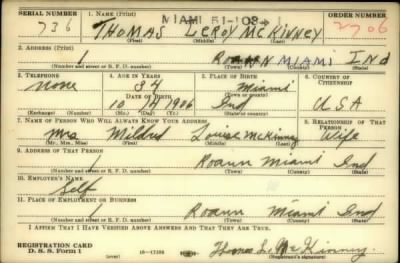 SERIAL NUMBER 1. NAME (Print) MIAMI 51-103-1 ORDER NUMBER
736 THOMAS LEROY McKINNEY 2706
(First) (Middle) (Last)
2. ADDRESS (Print)
1 ROANN MIAMI IND
(Number and street or R. F. D. number) (Town) (County) (State)
3. TELEPHONE 4. AGE IN YEARS 5. PLACE OF BIRTH 6. COUNTRY OF CITIZENSHIP
none Miami
DATE OF BIRTH (Town or county)
10 1906 Ind USA
(Exchange) (Number) (Mo.) (Day) (Yr.) (State or country)
7. NAME OF PERSON WHO WILL ALWAYS KNOW YOUR ADDRESS 8. RELATIONSHIP OF THAT PERSON
Mrs Mildred Louise McKinney Wife
(Mr., Mrs., Miss) (First) (Middle) (Last)
9. ADDRESS OF THAT PERSON
1 Roann Miami Ind
(Number and street or R. F. D. number) (Town) (County) (State)
10. EMPLOYER'S NAME
Self
11. PLACE OF EMPLOYMENT OR BUSINESS
1 Roann Miami Ind
(Number and street or R. F. D. number) (Town) (County) (State)
I AFFIRM THAT I HAVE VERIFIED ABOVE ANSWERS AND THAT THEY ARE TRUE.
REGISTRATION CARD
D. S. S. Form 1 (over) 16-17105 Thomas L. McKinney
(Registrant's signature)